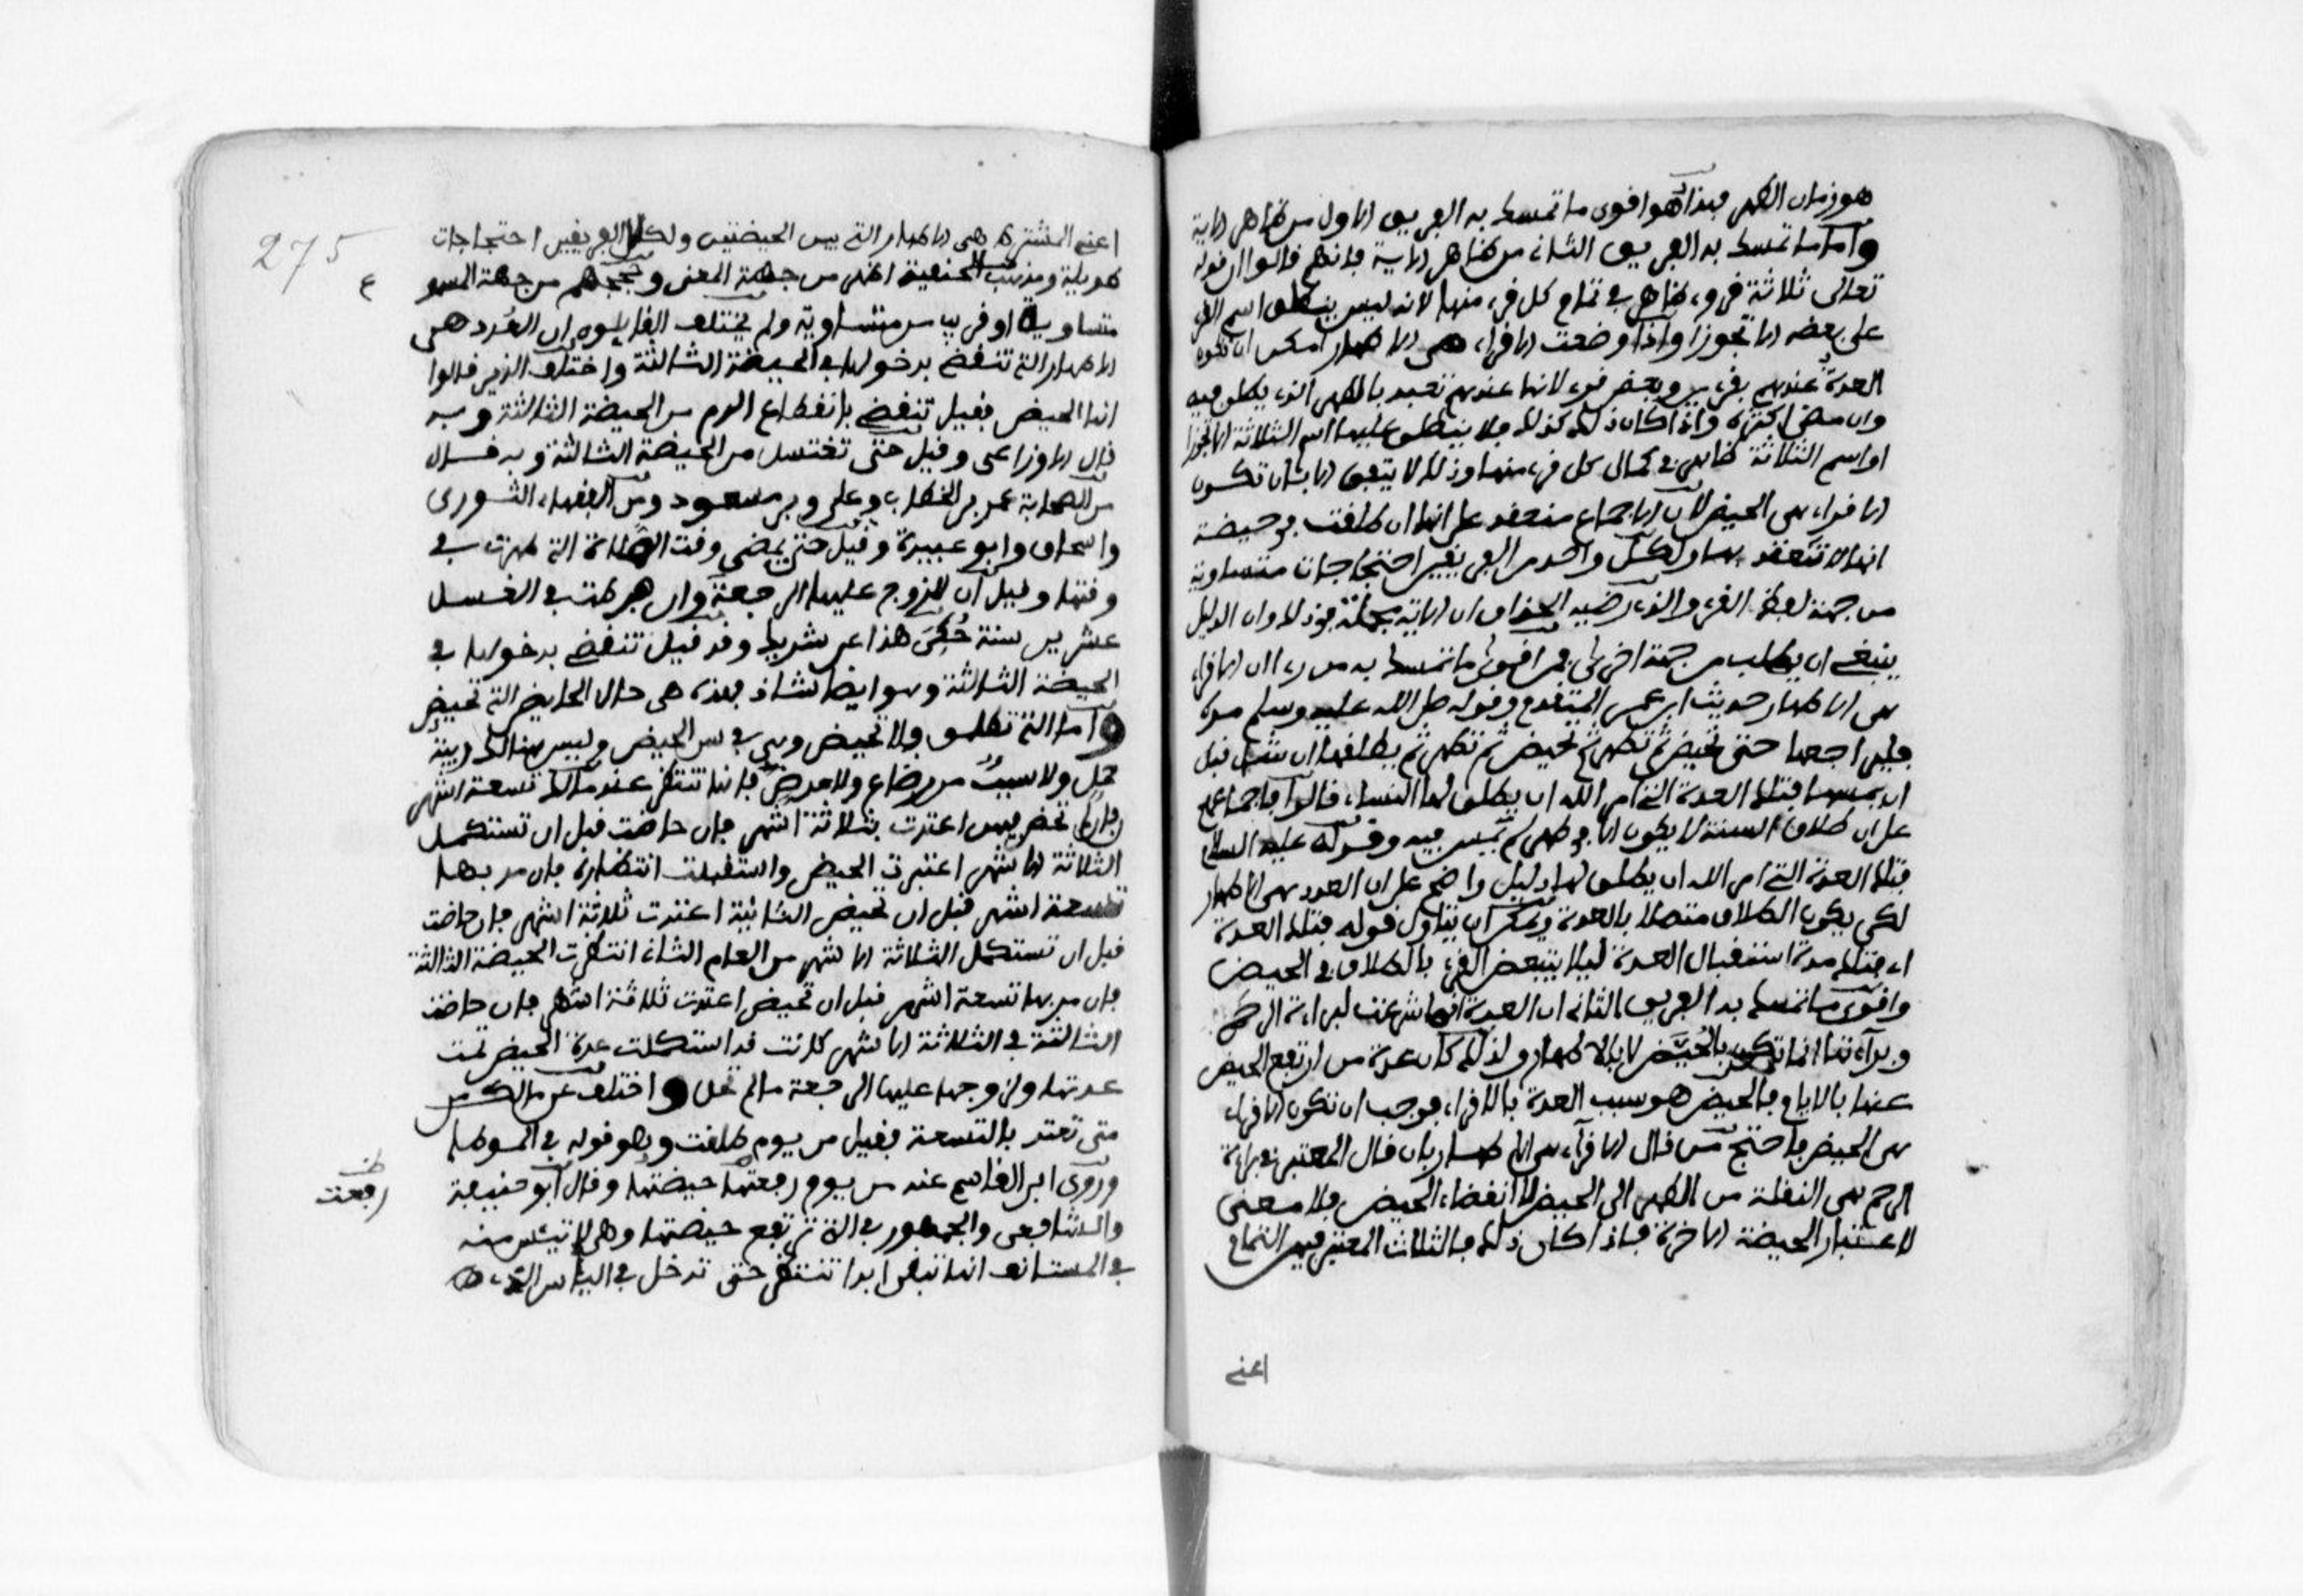 هو زمان الطهر فهذا هو اقوى ما تمسك به الفريق الاول من ظاهر الاية
واما ما تمسك به الفريق الثانى من ظاهر الاية فانهم قالوا ان قوله
تعالى ثلاثة قروء ظاهر في تمام كل قرء منها لانه ليس ينطلق اسم القرء
على بعضه الا تجوزا واذا وضعت الاقراء هى الاطهار امكن ان تكون
العدة عندهم بقرءين وبعض قرء لانها عندهم تعتد بالطهر الذى يطلق فيه
وان مضى اكثره واذا كان ذلك كذلك فلا ينطلق عليها اسم الثلاثة الا تجوزا
واسم الثلاثة ظاهر في كمال كل قرء منها وذلك لا يتفق الا بان تكون
الاقراء هى الحيض لان الاجماع منعقد على انها ان طلقت في حيضة
انها لا تعتد بها ولكل واحد من الفريقين احتجاجات متساوية
من جهة لفظ القرء والذى رضيه الحذاق ان الاية مجملة في ذلك وان الدليل
ينبغى ان يطلب من جهة اخرى فمن اقوى ما تمسك به من راى ان الاقراء
هى الاطهار حديث ابن عمر المتقدم وقوله صلى الله عليه وسلم مره
فليراجعها حتى تحيض ثم تطهر ثم تحيض ثم تطهر ثم يطلقها ان شاء قبل
ان يمسها فتلك العدة التى امر الله ان يطلق لها النساء قالوا فاجماعهم
على ان طلاق السنة لا يكون الا في طهر لم تمس فيه وقوله عليه السلام
فتلك العدة التى امر الله ان يطلق لها دليل واضح على ان العدد هى الاطهار
لكى يكون الطلاق متصلا بالعدة ويمكن ان يتاول قوله فتلك العدة
اى فتلك مدة استقبال العدة ليلا يتبعض القرء بالطلاق في الحيض
واقوى ما تمسك به الفريق الثانى ان العدة انما شرعت لبراءة الرحم
وبراءتها انما تكون بالحيض لا بالاطهار ولذلك كان عدة من ارتفع الحيض
عنها بالايام فالحيض هو سبب العدة بالاقراء فوجب ان تكون الاقراء
هى الحيض واحتج من قال الاقراء هى الاطهار بان قال المعتبر في براءة
الرحم هى النقلة من الطهر الى الحيض لا انقضاء الحيض فلا معنى
لاعتبار الحيضة الاخرة فاذا كان ذلك فالثلاث المعتبر فيهن التمام
اعنى
275
اعنى المشترط هى الاطهار التى بين الحيضتين ولكلا الفريقين احتجاجات
طويلة ومذهب الحنفية اظهر من جهة المعنى وحججهم من جهة المسموع
متساوية او قريب من متساوية ولم يختلف القايلون ان العدد هى
الاطهار التى تنقضى بدخولها في الحيضة الثالثة واختلف الذين قالوا
انها الحيض فقيل تنقضى بانقطاع الدم من الحيضة الثالثة وبه
قال الاوزاعى وقيل حتى تغتسل من الحيضة الثالثة وبه قال
من الصحابة عمر بن الخطاب وعلى وبن مسعود ومن الفقهاء الثورى
واسحاق وابو عبيدة وقيل حتى يمضى وقت الصلاة التى طهرت في
وقتها وقيل ان للزوج عليها الرجعة وان فرطت في الغسل
عشرين سنة حكى هذا عن شريك وقد قيل تنقضى بدخولها في
الحيضة الثالثة وهو ايضا شاذ فهذه هى حال الحايض التى تحيض
واما التى تطلق ولا تحيض وهى في سن الحيض وليس هنالك ريبة
حمل ولا سبب من رضاع ولا مرض فانها تنتظر عند مالك تسعة اشهر
فان لم تحض فيهن اعتدت بثلاثة اشهر فان حاضت قبل ان تستكمل
الثلاثة الاشهر اعتبرت الحيض واستقبلت انتظاره فان مر بها
تسعة اشهر قبل ان تحيض الثانية اعتدت ثلاثة اشهر فان حاضت
قبل ان تستكمل الثلاثة الاشهر من العام الثانى انتظرت الحيضة الثالثة
فان مر بها تسعة اشهر قبل ان تحيض اعتدت ثلاثة اشهر فان حاضت
الثالثة في الثلاثة الاشهر كانت قد استكملت عدة الحيض تمت
عدتها ولزوجها عليها الرجعة ما لم تحل واختلف عن مالك من
متى تعتد بالتسعة فقيل من يوم طلقت وهو قوله في الموطا
وروى ابن القاسم عنه من يوم رفعتها حيضتها وقال ابو حنيفة
والشافعى والجمهور في التى ترتفع حيضتها وهى لا تيئس منه
في المستانف انها تبقى ابدا تنتظر حتى تدخل في
رفعت